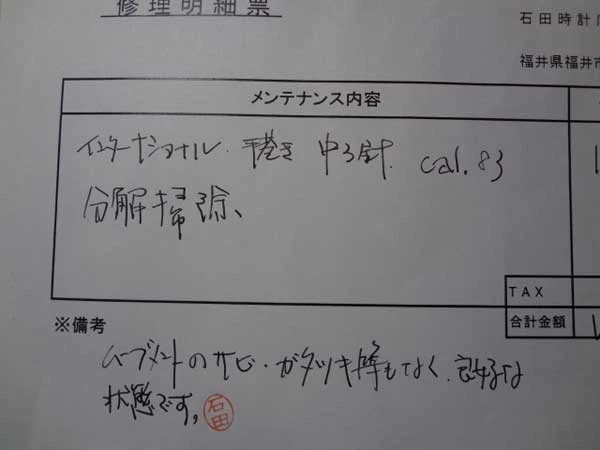 修理明細票
石田時計
福井県福井市
メンテナンス内容
インターナショナル. 手巻き 中3針. cal.83
分解掃除、
TAX
合計金額
※備考
ムーブメントのサビ・ガタツキ等もなく、良好な
状態です。
石田